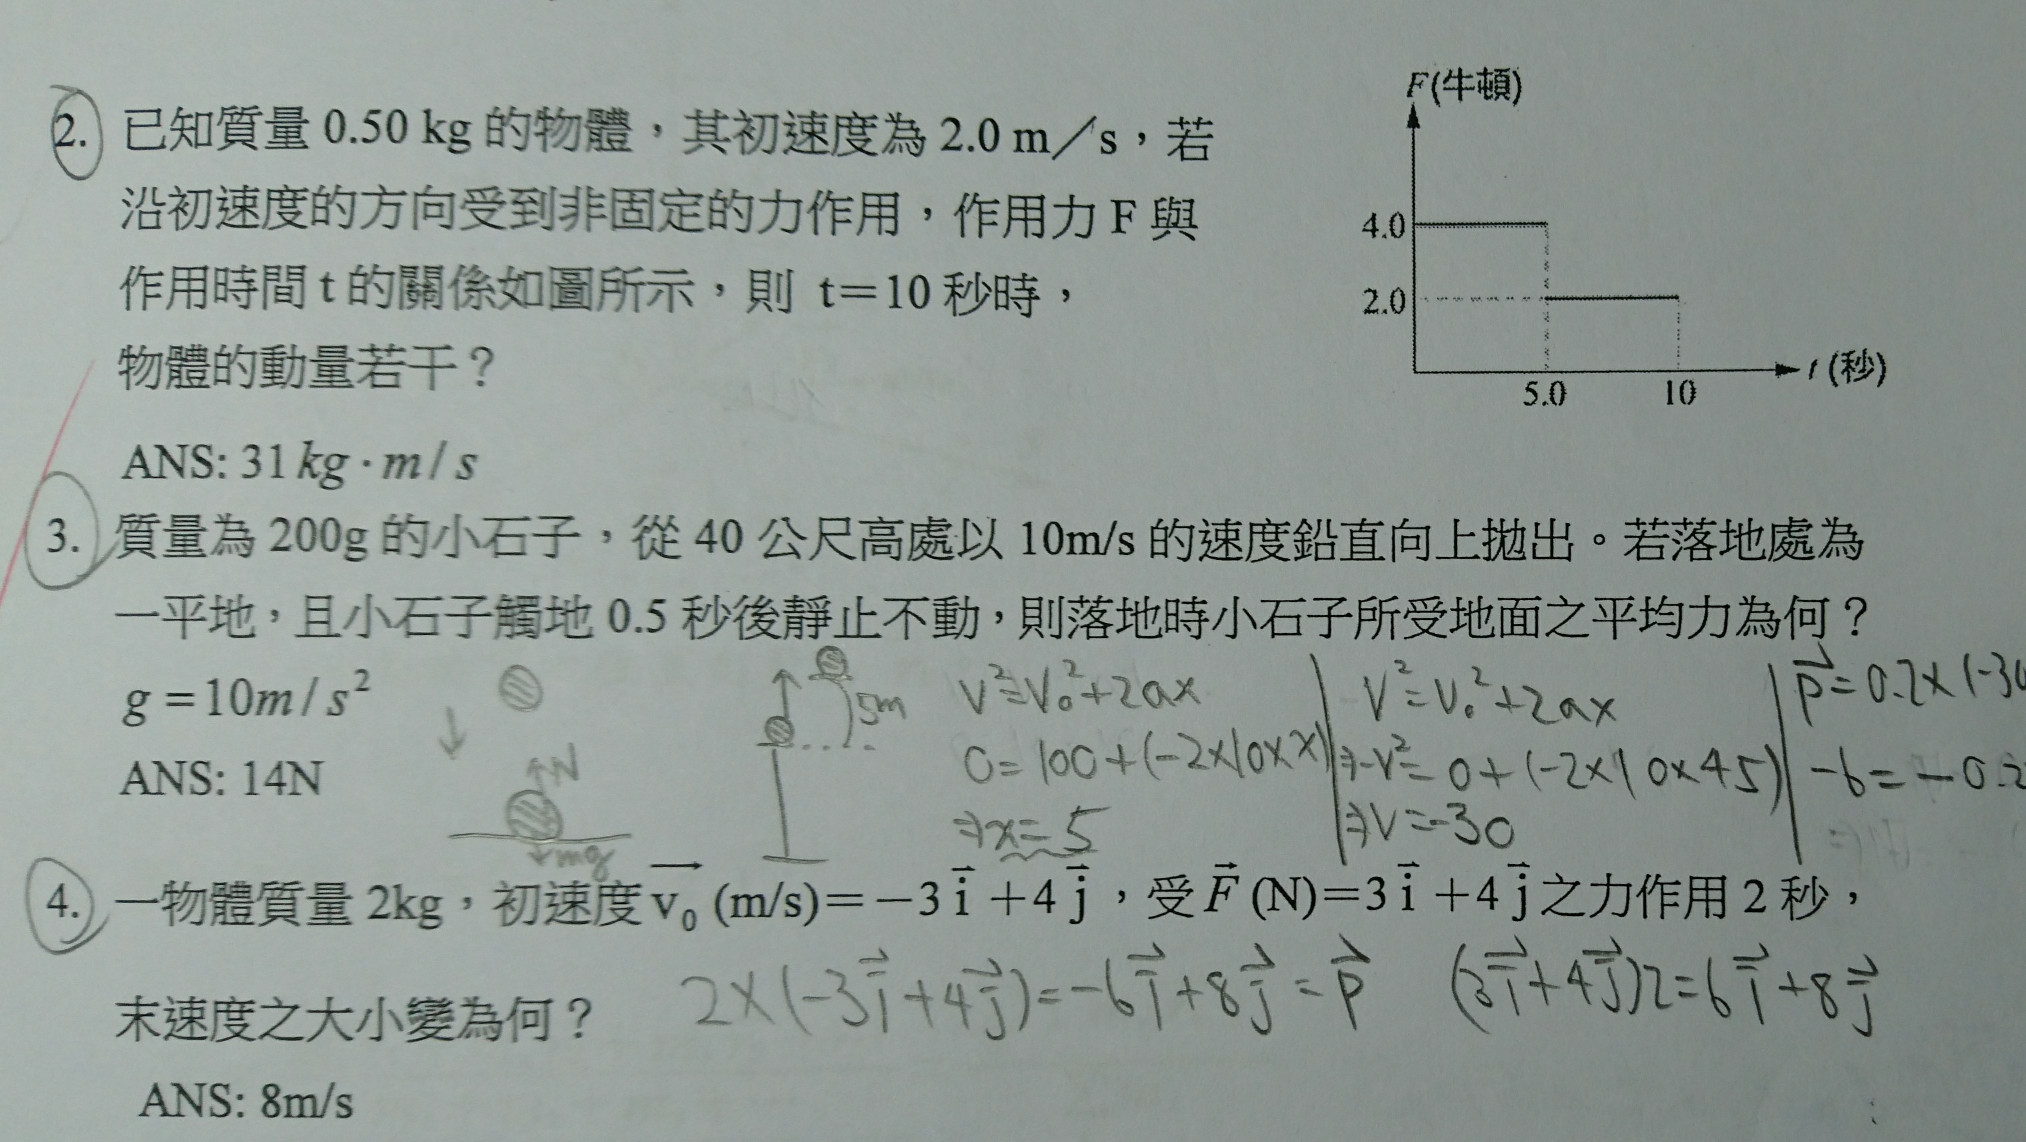 2. 已知質量 0.50 kg 的物體，其初速度為 2.0 m／s，若
沿初速度的方向受到非固定的力作用，作用力 F 與
作用時間 t 的關係如圖所示，則 t＝10 秒時，
物體的動量若干？
F(牛頓)
4.0
2.0
5.0 10
t (秒)
ANS: 31 kg · m / s
3. 質量為 200g 的小石子，從 40 公尺高處以 10m/s 的速度鉛直向上拋出。若落地處為
一平地，且小石子觸地 0.5 秒後靜止不動，則落地時小石子所受地面之平均力為何？
g = 10m / s²
ANS: 14N
N
mg
5m
V²=V₀²+2ax
0=100+(-2×10×x)
⇒x=5
V²=V₀²+2ax
⇒-V²=0+(-2×10×45)
⇒V=-30
p⃗=0.2×(-30
-6=-0.2
4. 一物體質量 2kg，初速度 v₀⃗ (m/s)＝－3 i⃗ ＋4 j⃗，受 F⃗ (N)＝3 i⃗ ＋4 j⃗ 之力作用 2 秒，
末速度之大小變為何？
2×(-3i⃗+4j⃗)=-6i⃗+8j⃗=p⃗
(3i⃗+4j⃗)2=6i⃗+8j⃗
ANS: 8m/s